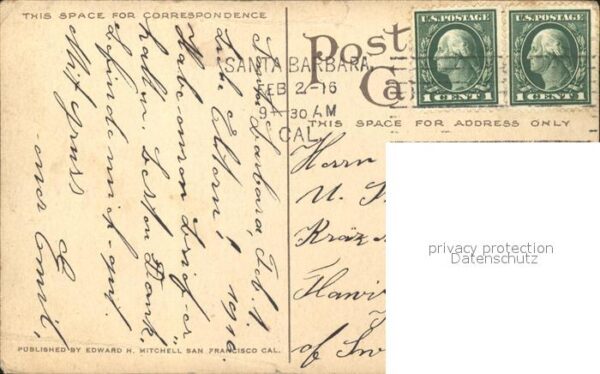 THIS SPACE FOR CORRESPONDENCE
Santa Barbara, Feb. 1.
1916.
Liebe Eltern!
Habe euren Brief er-
halten. besten Dank.
befinde mich gut.
Mit gruss
euer Emil,
PUBLISHED BY EDWARD H. MITCHELL SAN FRANCISCO CAL.
Post
Ca
SANTA BARBARA
FEB 2-16
9-30 AM
CAL.
U.S. POSTAGE
1 CENT 1
U.S. POSTAGE
1 CENT 1
THIS SPACE FOR ADDRESS ONLY
Herrn
U. S
of Sw
privacy protection
Datenschutz